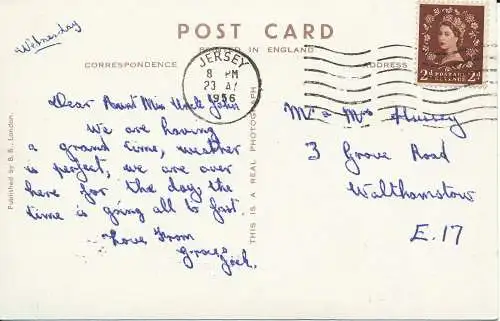 Wednesday
POST CARD
PRINTED IN ENGLAND
CORRESPONDENCE
ADDRESS
JERSEY
8 PM
23
1956
2d POSTAGE REVENUE 2d
Dear Aunt Min Uncle John
We are having
a grand time, weather
is perfect, we are over
here for the day, the
time is going all to fast.
Love From
Grace
Jock.
Mr & Mrs
3 Grove Road
Walthamstow
E.17
Published by B. B., London.
THIS IS A REAL PHOTOGRAPH